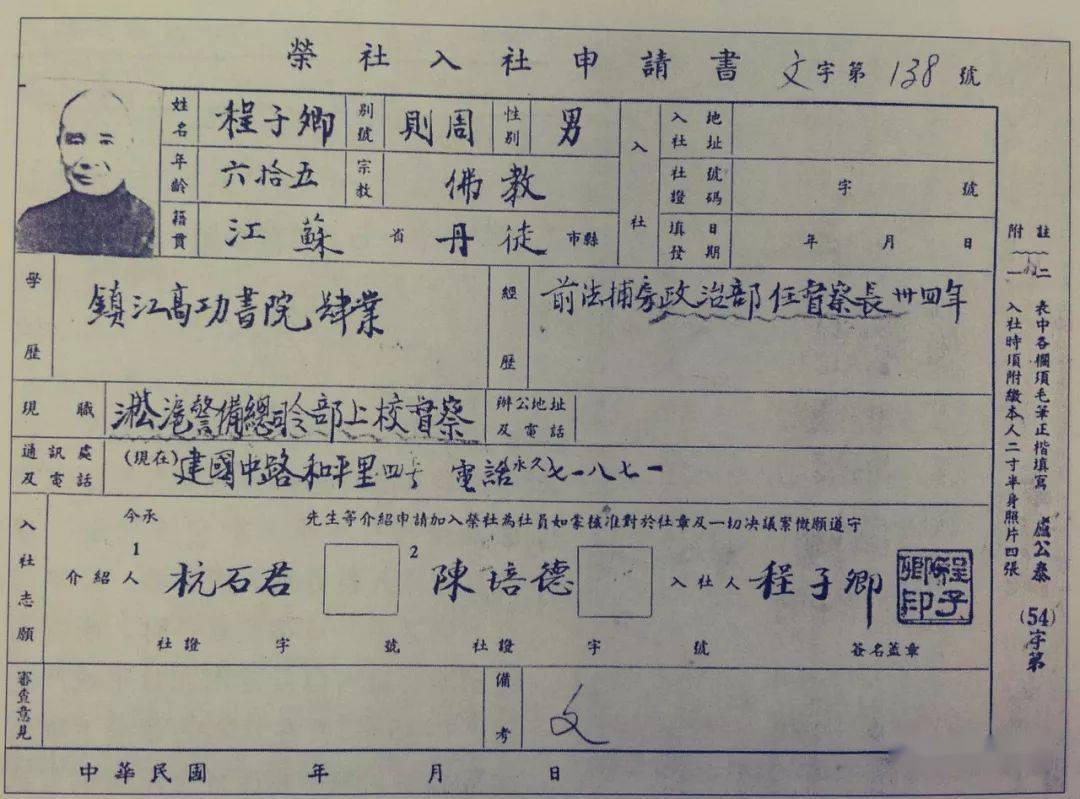 榮社入社申請書 文字第138號
姓名 程子卿 別號 則周 性別 男
年齡 六拾五 宗教 佛教
籍貫 江蘇省丹徒市縣
入社
入社地址
社證號碼 字 號
填發日期 年 月 日
學歷 鎮江高功書院肄業
經歷 前法捕房政治部任督察長卅四年
現職 淞滬警備總司令部上校督察
辦公地址及電話
通訊處及電話 (現在)建國中路和平里四号 電話(永久)七一八七一
入社志願
今承 先生等介紹申請加入榮社為社員如蒙核准對於社章及一切決議案慨願遵守
介紹人 1 杭石君 2 陳培德 入社人 程子卿 程子卿印
社證 字 號 社證 字 號 簽名蓋章
審查意見
備考 文
中華民國 年 月 日
附註
一 入社時須附繳本人二寸半身照片四張
二 表中各欄須毛筆正楷填寫
盧公泰 (54)字第